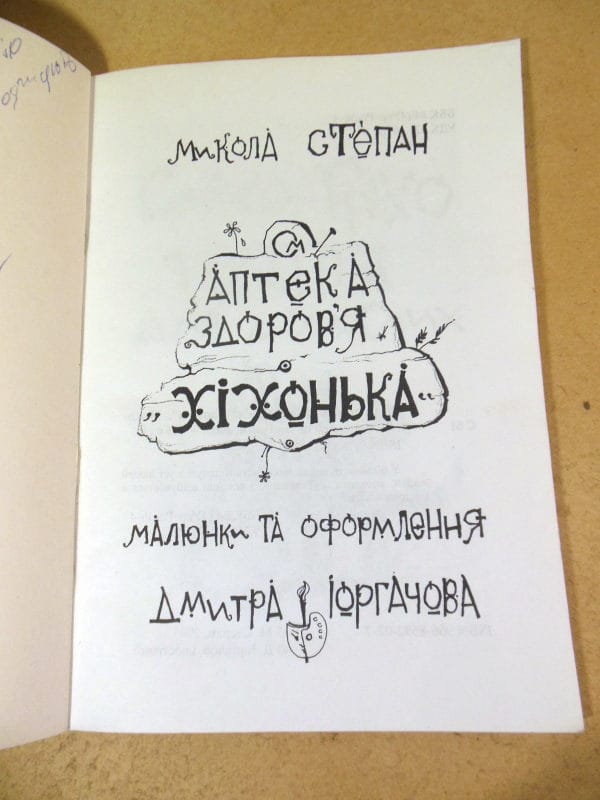 Микола Степан
См
Аптека
здоров'я
„Хіхонька“
Малюнки та оформлення
Дмитра Іоргачова